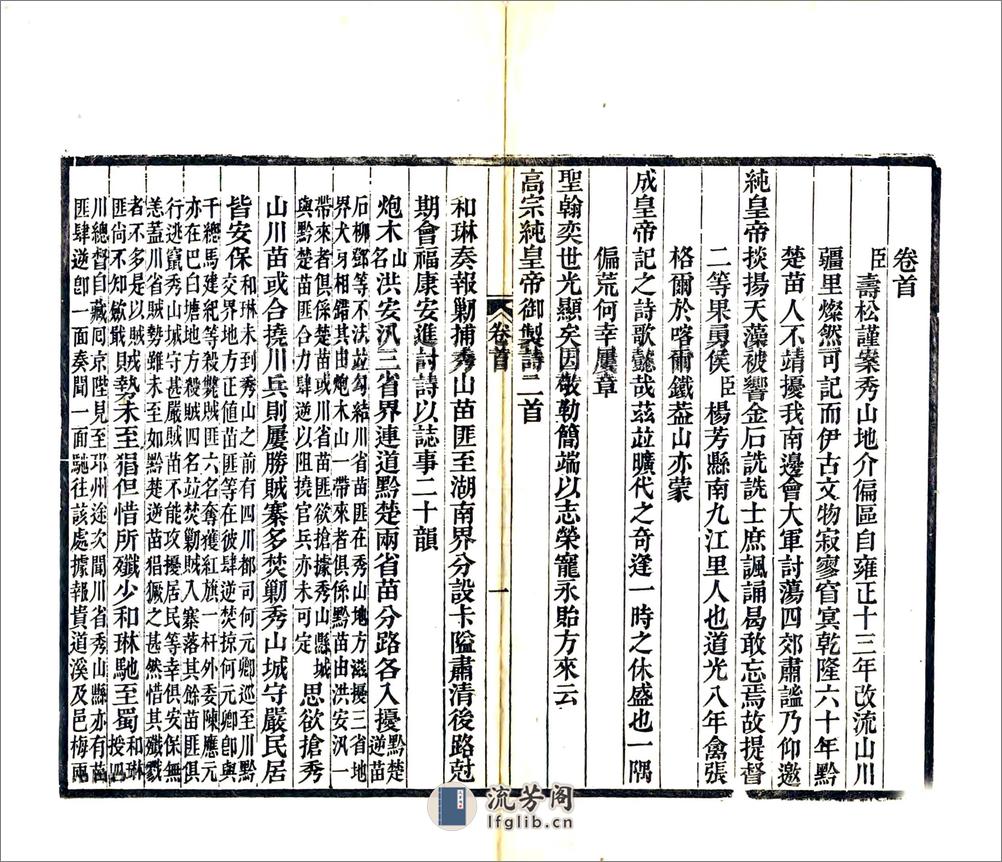 卷首
臣壽松謹案秀山地介偏區自雍正十三年改流山川
疆里燦然可記而伊古文物寂寥窅冥乾隆六十年黔
楚苗人不靖擾我南邊會大軍討蕩四郊肅謐乃仰邀
純皇帝掞揚天藻被響金石詵詵士庶諷誦曷敢忘焉故提督
二等果勇侯臣楊芳縣南九江里人也道光八年禽張
格爾於喀爾鐵葢山亦蒙
成皇帝記之詩歌懿哉茲竝曠代之奇逢一時之休盛也一隅
偏荒何幸屢章
聖翰奕世光顯矣因敬勒簡端以志榮寵永貽方來云
高宗純皇帝御製詩二首
卷首 一
和琳奏報勦捕秀山苗匪至湖南界分設卡隘肅清後路尅
期會福康安進討詩以誌事二十韻
炮木山名洪安汛三省界連道黔楚兩省苗分路各入擾黔楚逆苗
石柳鄧等不法竝勾結川省苗匪在秀山地方滋擾三省地
界犬牙相錯其由炮木山一帶來者俱係黔苗由洪安汛一
帶來者俱係楚苗或川省苗匪欲搶據秀山縣城
與黔楚苗匪合力肆逆以阻撓官兵亦未可定思欲搶秀
山川苗或合撓川兵則屢勝賊寨多焚勦秀山城守嚴民居
皆安保和琳未到秀山之前有四川都司何元卿巡至川黔
交界地方正值苗匪等在彼肆逆焚掠何元卿卽與
千總馬建紀等殺斃賊匪六名奪獲紅旗一杆外委陳應元
亦在巴白塘地方殺賊四名竝焚勦賊人寨落其餘苗匪俱
行逃竄秀山城守甚嚴賊苗不能攻擾居民等幸俱安保無
恙葢川省賊勢雖未至如黔楚逆苗猖獗之甚然惜其殲戮
者不多是以賊匪尚不知斂戢賊勢未至猖但惜所殲少和琳馳至蜀和琳授四
川總督自藏囘京陛見至邛州途次聞川省秀山縣亦有苗
匪肆逆卽一面奏聞一面馳往該處據報貴道溪及邑梅兩
流芳阁
lfglib.cn